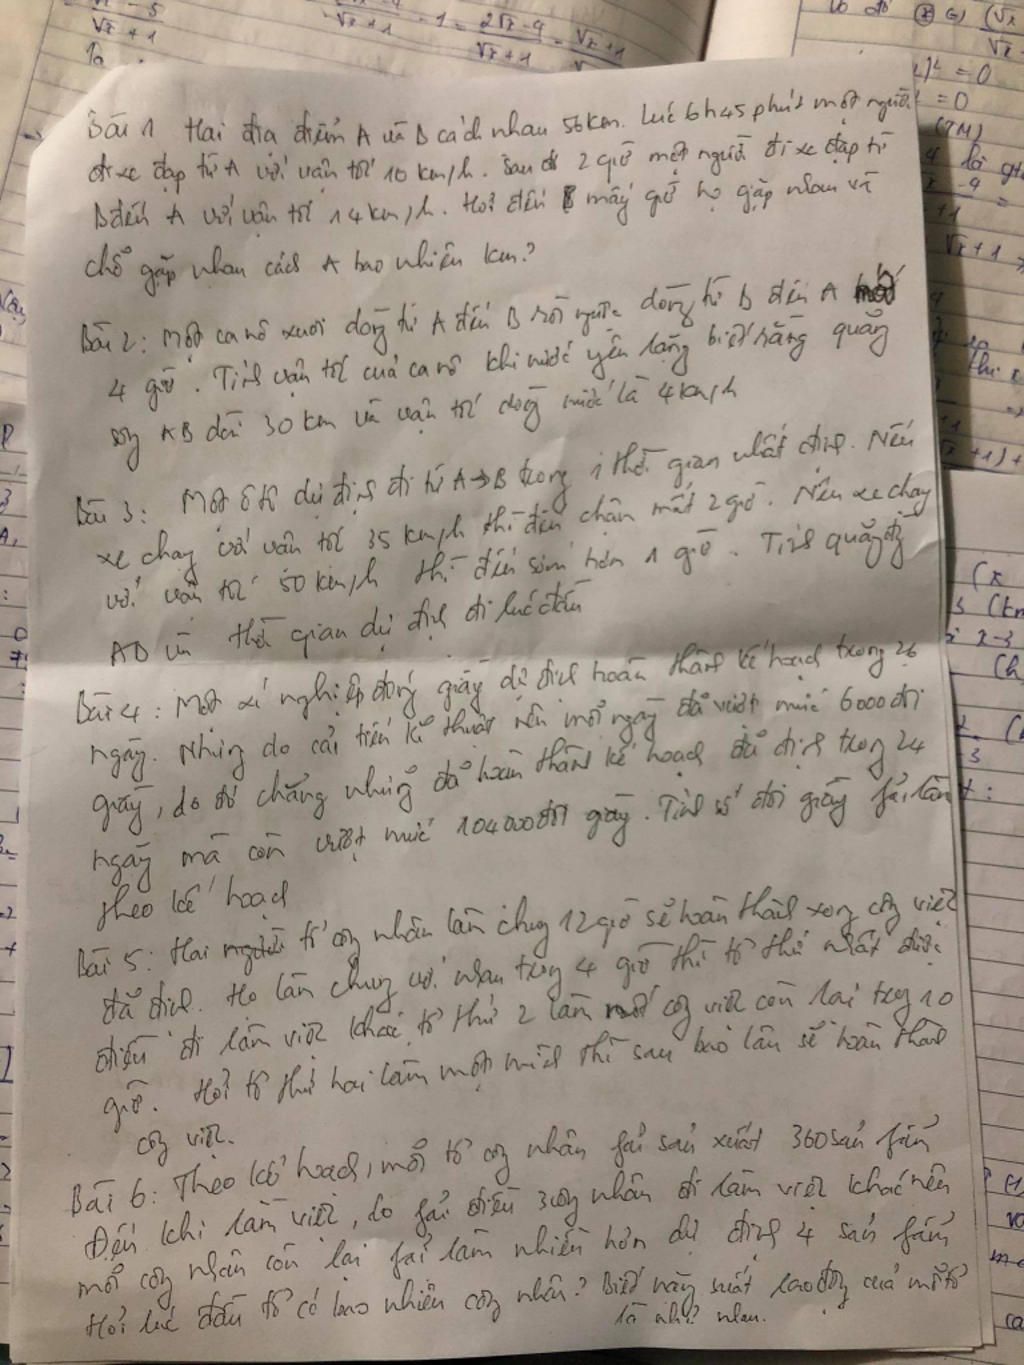 Bài 1 Hai địa điểm A và B cách nhau 56km. Lúc 6h45 phút một người
đi xe đạp từ A với vận tốc 10 km/h. Sau đó 2 giờ một người đi xe đạp từ
B đến A với vận tốc 14 km/h. Hỏi đến mấy giờ họ gặp nhau và
chỗ gặp nhau cách A bao nhiêu km?
Bài 2: Một ca nô xuôi dòng từ A đến B rồi ngược dòng từ B đến A mất
4 giờ. Tính vận tốc của ca nô khi nước yên lặng biết rằng quãng
sông AB dài 30 km và vận tốc dòng nước là 4 km/h
Bài 3: Một ô tô dự định đi từ A → B trong 1 thời gian nhất định. Nếu
xe chạy với vận tốc 35 km/h thì đến chậm mất 2 giờ. Nếu xe chạy
với vận tốc 50 km/h thì đến sớm hơn 1 giờ. Tính quãng đg
AB và thời gian dự định đi lúc đầu
Bài 4: Một xí nghiệp đóng giầy dự định hoàn thành kế hoạch trong 26
ngày. Nhưng do cải tiến kĩ thuật nên mỗi ngày đã vượt mức 6000 đôi
giầy, do đó chẳng những đã hoàn thành kế hoạch đã định trong 24
ngày mà còn vượt mức 104000 đôi giầy. Tính số đôi giầy fải làm
theo kế hoạch
Bài 5: Hai tổ công nhân làm chung 12 giờ sẽ hoàn thành xong công việc
đã định. Họ làm chung với nhau trong 4 giờ thì tổ thứ nhất được
điều đi làm việc khác, tổ thứ 2 làm nốt công việc còn lại trong 10
giờ. Hỏi tổ thứ hai làm một mình thì sau bao lâu sẽ hoàn thành
công việc.
Bài 6: Theo kế hoạch, mỗi tổ công nhân fải sản xuất 360 sản fẩm
Đến khi làm việc, do fải điều 3 công nhân đi làm việc khác nên
mỗi công nhân còn lại fải làm nhiều hơn dự định 4 sản fẩm
Hỏi lúc đầu tổ có bao nhiêu công nhân? Biết năng suất lao động của mỗi tổ
là như nhau.